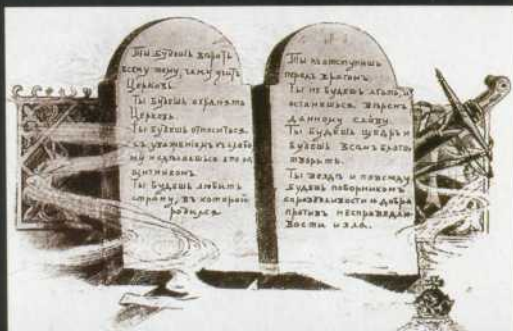 Ты будешь вѣрить
всему тому, чему учитъ
Церковь.
Ты будешь охранять
Церковь.
Ты будешь относиться
съ уваженіемъ къ слабо-
му и сдѣлаешься его за-
щитникомъ.
Ты будешь любить
страну, въ которой
родился.
Ты не отступишь
передъ врагомъ.
Ты не будешь лгать, и
останешься вѣренъ
данному слову.
Ты будешь щедръ и
будешь всѣмъ благо-
творить.
Ты вездѣ и повсюду
будешь поборникомъ
справедливости и добра
противъ несправедли-
вости и зла.